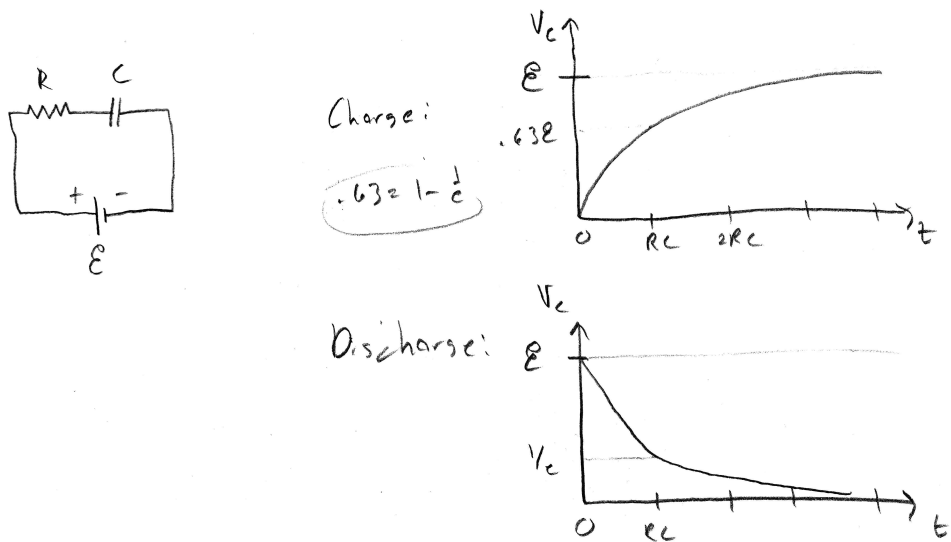 R C
+ -
ℰ
Charge:
.63 = 1 - 1/e
Vc
ℰ
.63ℰ
0 RC 2RC t
Discharge:
Vc
ℰ
1/e
0 RC t